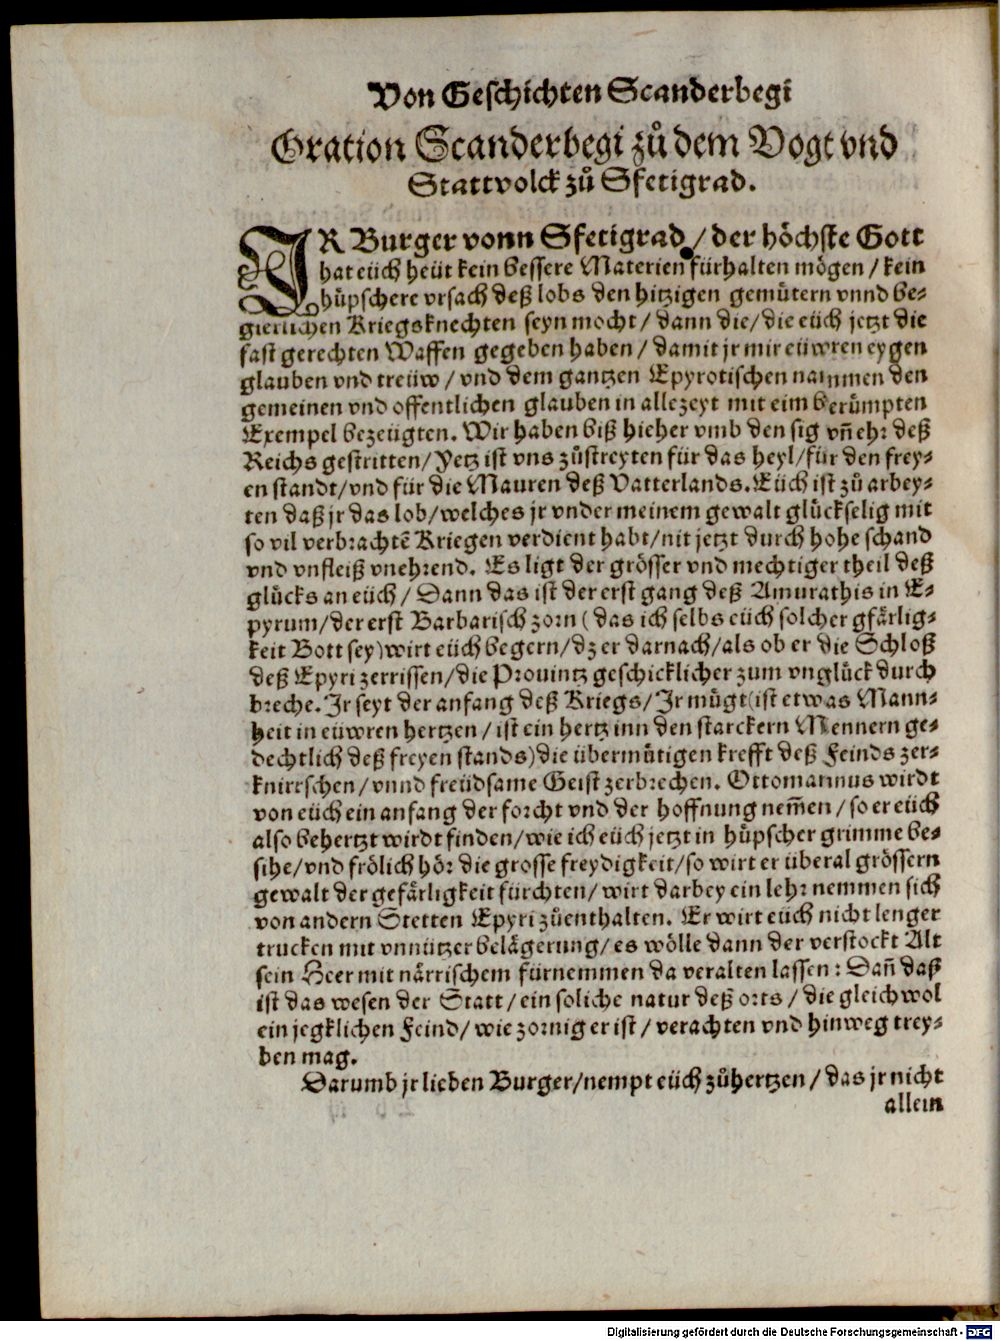 Von Geschichten Scanderbegi
Oration Scanderbegi zů dem Vogt vnd
Stattvolck zů Sfetigrad.
IR Burger vonn Sfetigrad / der höchste Gott
hat eüch heüt kein bessere Materien fürhalten mögen / kein
hüpschere vrsach deß lobs den hitzigen gemütern vnnd be-
gierlichen Kriegsknechten seyn mocht / dann die / die eüch jetzt die
fast gerechten Waffen gegeben haben / damit jr mir eüwren eygen
glauben vnd treüw / vnd dem gantzen Epyrotischen nammen den
gemeinen vnd offentlichen glauben in allezeyt mit eim berůmpten
Exempel bezeügten. Wir haben biß hieher vmb den sig vñ ehr deß
Reichs gestritten / Yetz ist vns zůstreyten für das heyl / für den frey-
en standt / vnd für die Mauren deß Vatterlands. Eüch ist zů arbey-
ten daß jr das lob / welches jr vnder meinem gewalt glückselig mit
so vil verbrachtē Kriegen verdient habt / nit jetzt durch hohe schand
vnd vnfleiß vnehrend. Es ligt der grösser vnd mechtiger theil deß
glücks an eüch / Dann das ist der erst gang deß Amurathis in E-
pyrum / der erst Barbarisch zorn ( das ich selbs eüch solcher gfärlig-
keit Bott sey ) wirt eüch begern / dz er darnach / als ob er die Schloß
deß Epyri zerrissen / die Prouintz geschicklicher zum vnglück durch
breche. Jr seyt der anfang deß Kriegs / Jr mügt ( ist etwas Mann-
heit in eüwren hertzen / ist ein hertz inn den starckern Mennern ge-
dechtlich deß freyen stands ) die übermütigen krefft deß Feinds zer-
knirrschen / vnnd freüdsame Geist zerbrechen. Ottomannus wirdt
von eüch ein anfang der forcht vnd der hoffnung nem̃en / so er eüch
also behertzt wirdt finden / wie ich eüch jetzt in hüpscher grimme be-
sihe / vnd frölich hör die grosse freydigkeit / so wirt er überal grössern
gewalt der gefärligkeit fürchten / wirt darbey ein lehr nemmen sich
von andern Stetten Epyri zůenthalten. Er wirt eüch nicht lenger
trucken mit vnnützer belägerung / es wölle dann der verstockt Alt
sein Heer mit närrischem fürnemmen da veralten lassen : Dañ daß
ist das wesen der Statt / ein soliche natur deß orts / die gleichwol
ein jegklichen Feind / wie zornig er ist / verachten vnd hinweg trey-
ben mag.
Darumb jr lieben Burger / nempt eüch zůhertzen / das jr nicht
allein
Digitalisierung gefördert durch die Deutsche Forschungsgemeinschaft - DFG